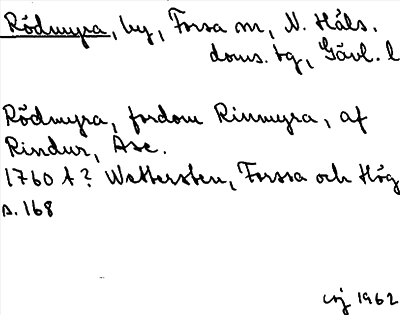 Rödmyra, by, Forsa sn, N. Häls.
doms. tg, Gävl. l
Rödmyra, fordom Rinmyra, af
Rindur, Åse.
1760 t? Wettersten, Forssa och Hög
s. 168
1962